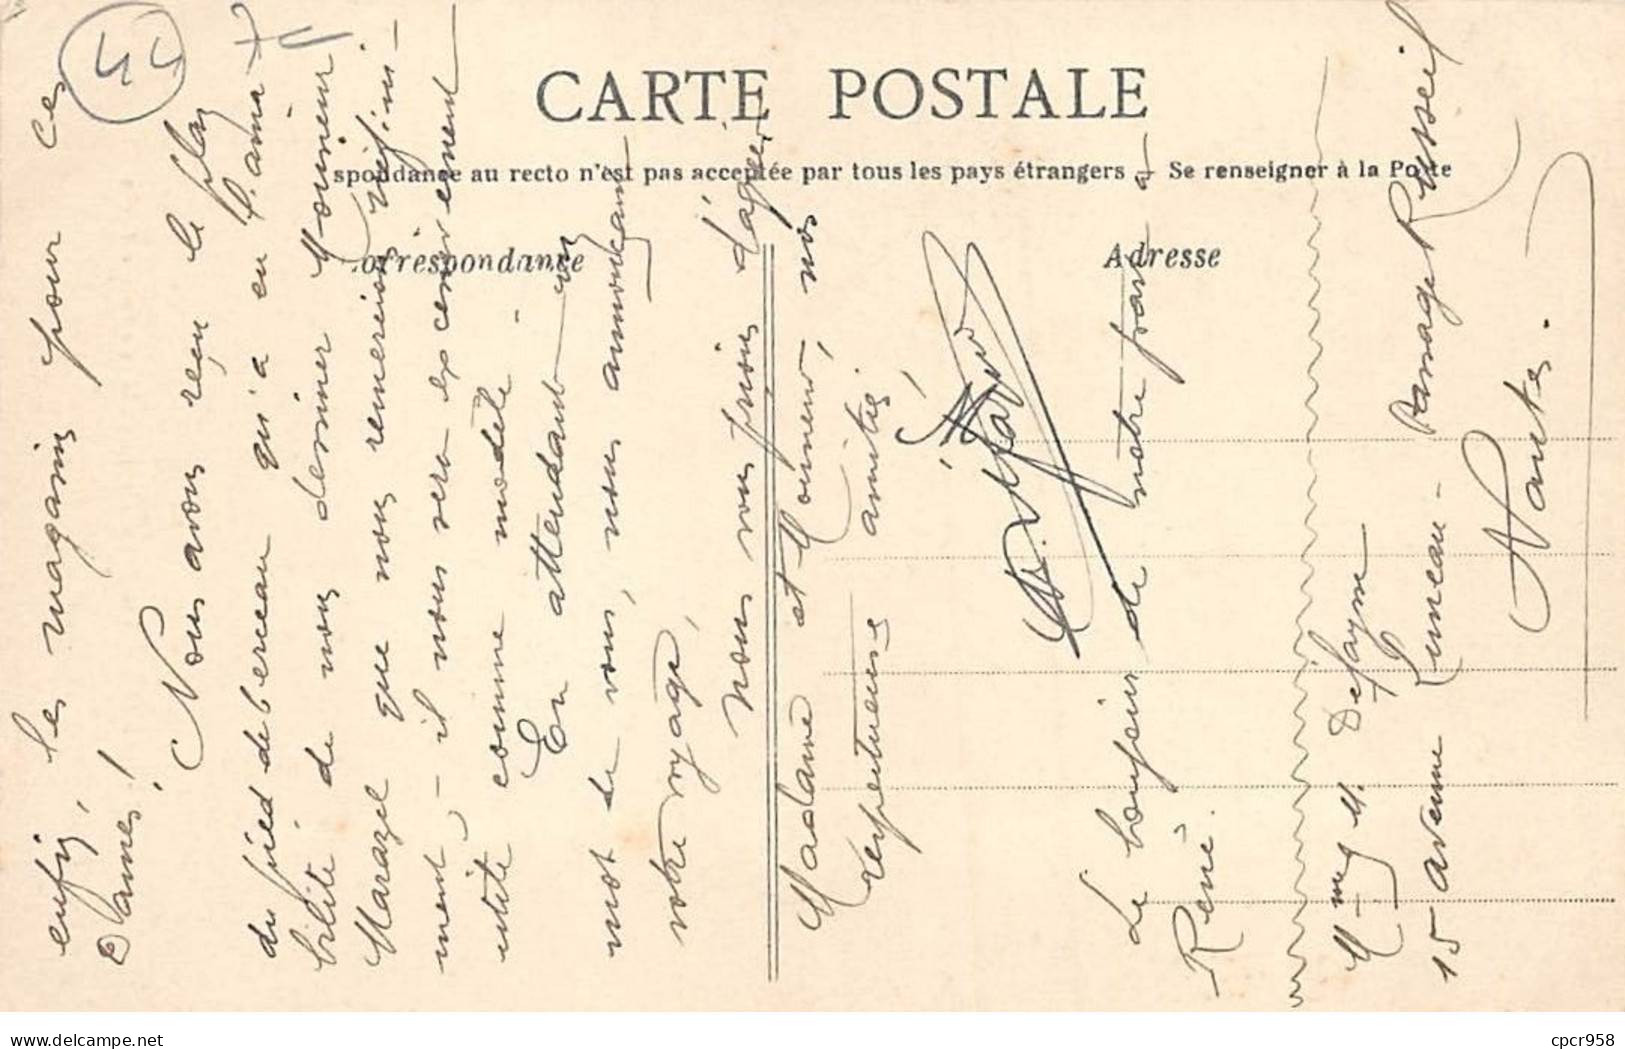 44
CARTE POSTALE
spondance au recto n'est pas acceptée par tous les pays étrangers - Se renseigner à la Poste
Correspondance
Adresse
enfin, les magasins pour ces
Dames!
Nous avons reçu le plan
du pied de berceau qu'a eu l'ama-
bilité de nous dessiner Monsieur
que nous remercions infini-
ment - il nous sera excessivement
utile comme modèle -
En attendant un
mot de vous, nous annonçant
votre voyage,
nous vous prions d'agréer
Madame et Monsieur, nos
respectueuses amitiés!
Le bonjour de notre part à
René.
15 avenue Luneau - Passage Russeil
Nantes.
cpcr958